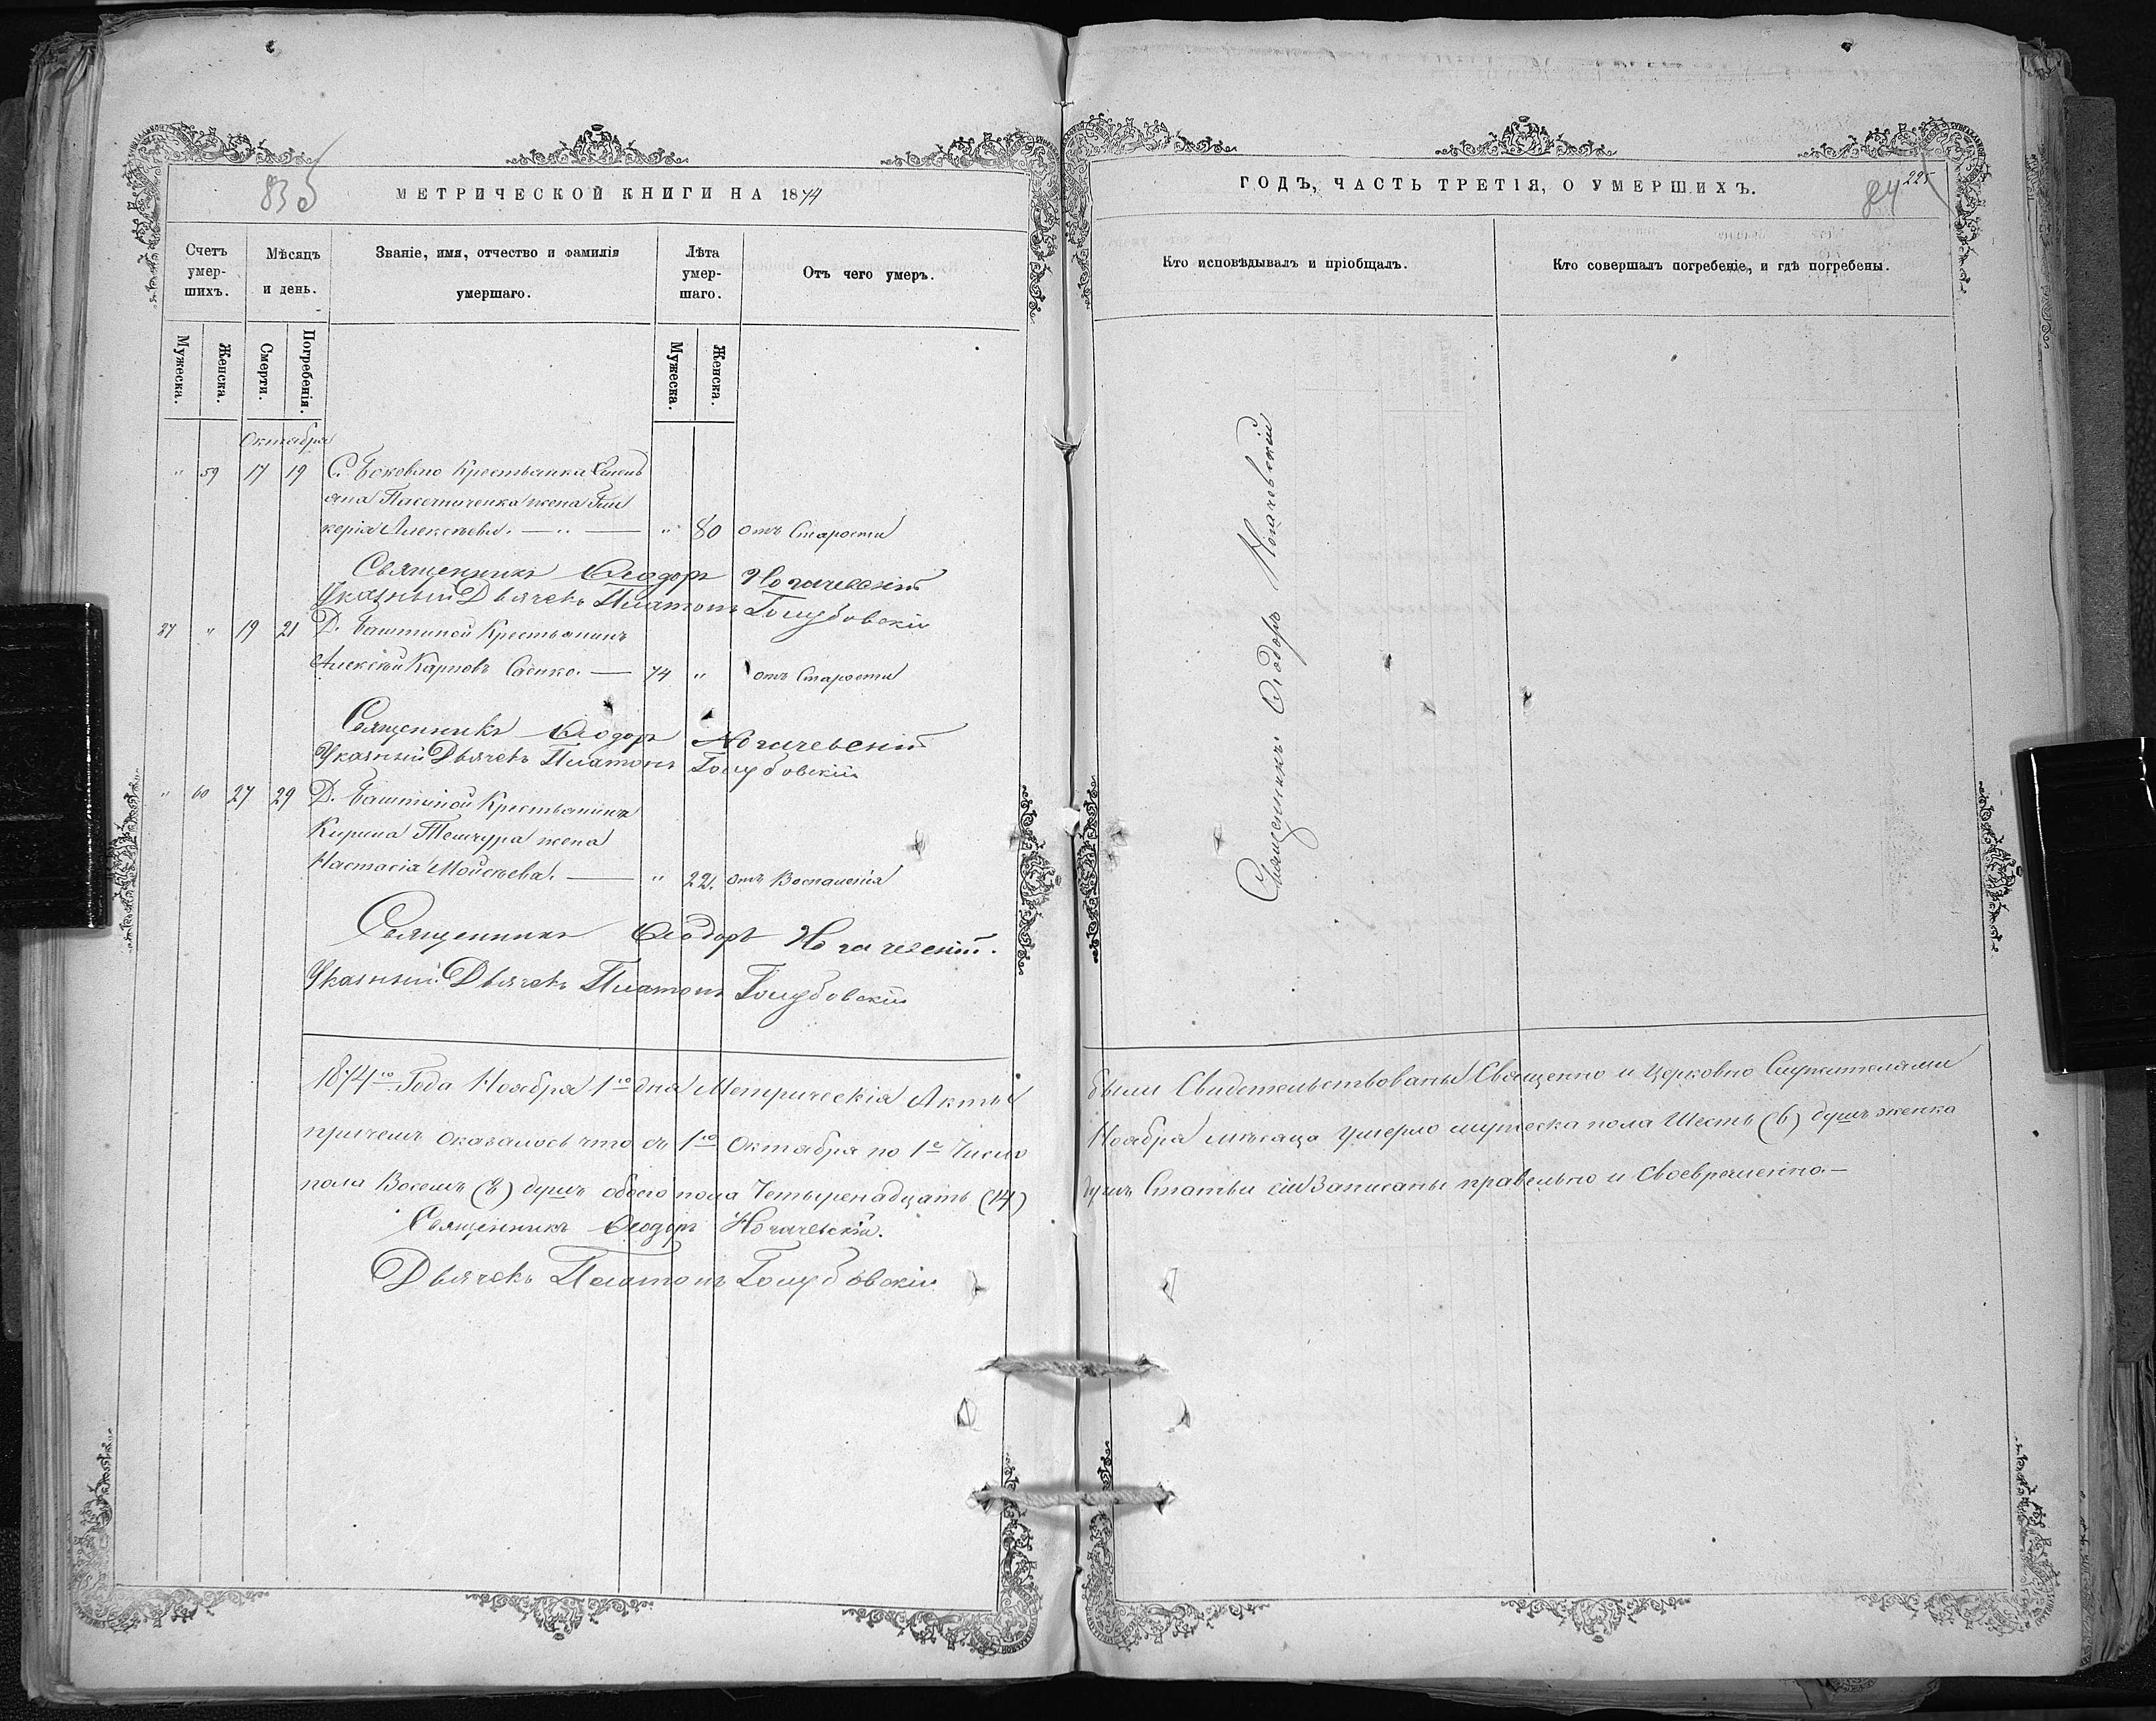 83б
МЕТРИЧЕСКОЙ КНИГИ НА 1874
Счетъ умер- шихъ.
Мѣсяцъ и день.
Званіе, имя, отчество и фамилія умершаго.
Лѣта умер- шаго.
Отъ чего умеръ.
Мужеска.
Женска.
Смерти.
Погребенія.
Мужеска.
Женска.
Октября
" 59 17 19 С. крестьянина
жена Гли
керія Алексѣева. — " — " 80 отъ Старости
Священникъ Ѳеодоръ Ногачевскій
Указный Дьячекъ Платонъ Голубовскій
37 " 19 21 Д. Баштиной Крестьянинъ
Алексѣй Карповъ Саенко. — 74 " отъ Старости
Священникъ Ѳеодоръ Ногачевскій
Указный Дьячекъ Платонъ Голубовскій
" 60 27 29 Д. Баштиной Крестьянина
Кирила жена
Настасія Мойсѣева. — " 22. отъ Воспаленія
Священникъ Ѳеодоръ Ногачевскій.
Указный Дьячекъ Платонъ Голубовскій
1874го Года Ноября 1го дня Метрическія Акты
причемъ оказалось что съ 1го Октября по 1е Число
пола Восемъ (8) душъ обоего пола Четыренадцать (14)
Священникъ Ѳеодоръ Ногачевскій.
Дьячекъ Платонъ Голубовскій
ГОДЪ, ЧАСТЬ ТРЕТІЯ, О УМЕРШИХЪ.
225
84
Кто исповѣдывалъ и пріобщалъ.
Кто совершалъ погребеніе, и гдѣ погребены.
Священникъ Ѳеодоръ Ногачевскій
были Свидетельствованы Священно и Церковно Служителями
Ноября мѣсяца умерло мужеска пола Шесть (6) душъ женска
душъ Статьи сіи Записаны правельно и Своевременно. —